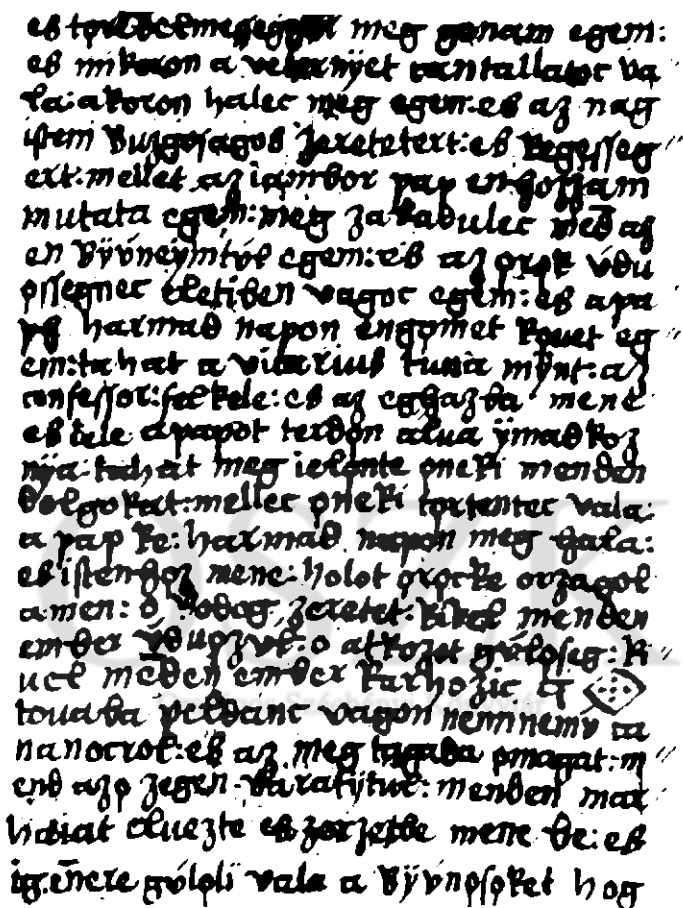 es meg gonam egem:
es mikoron a veternÿet cantallatoc va
la: akoron halec meg egem: es az nag
isteni buzgosagos zeretetert: es kegesseg〃
ert: mellet az iambor pap en hozzam
mutata egem: meg zabadulec med az
en bÿvneÿmtvl egem: es az prok vdu
pssegnec eletiben vagoc egem: es a pa
ps harmad napon engomet kouet eg〃
em: ta hat a vicarius tuna mÿnt: az
confessor: fel kele: es az eghazba mene
es lele a papot terdon alua ÿmadkoz
nÿa: tahat meg ielonte pneki menden
dolgokat: mellec pneki tortentec vala:
a pap ke: harmad napon meg hala:
es istenhoz mene: holot procke orzagol
amen: o bodog zeretet: kikel menden
ember vduozvl: o atkozot gvloseg: k〃
uel meden ember karhozic
touaba peldanc vagon nemi nemv ta
nanocrol: es az meg tagada pmagat: m〃
end azp zegen baratÿtul: menden mar
haiat eluezte es zerzetbe mene be: es
ig.encre gvloli vala a bÿvnpspket hog